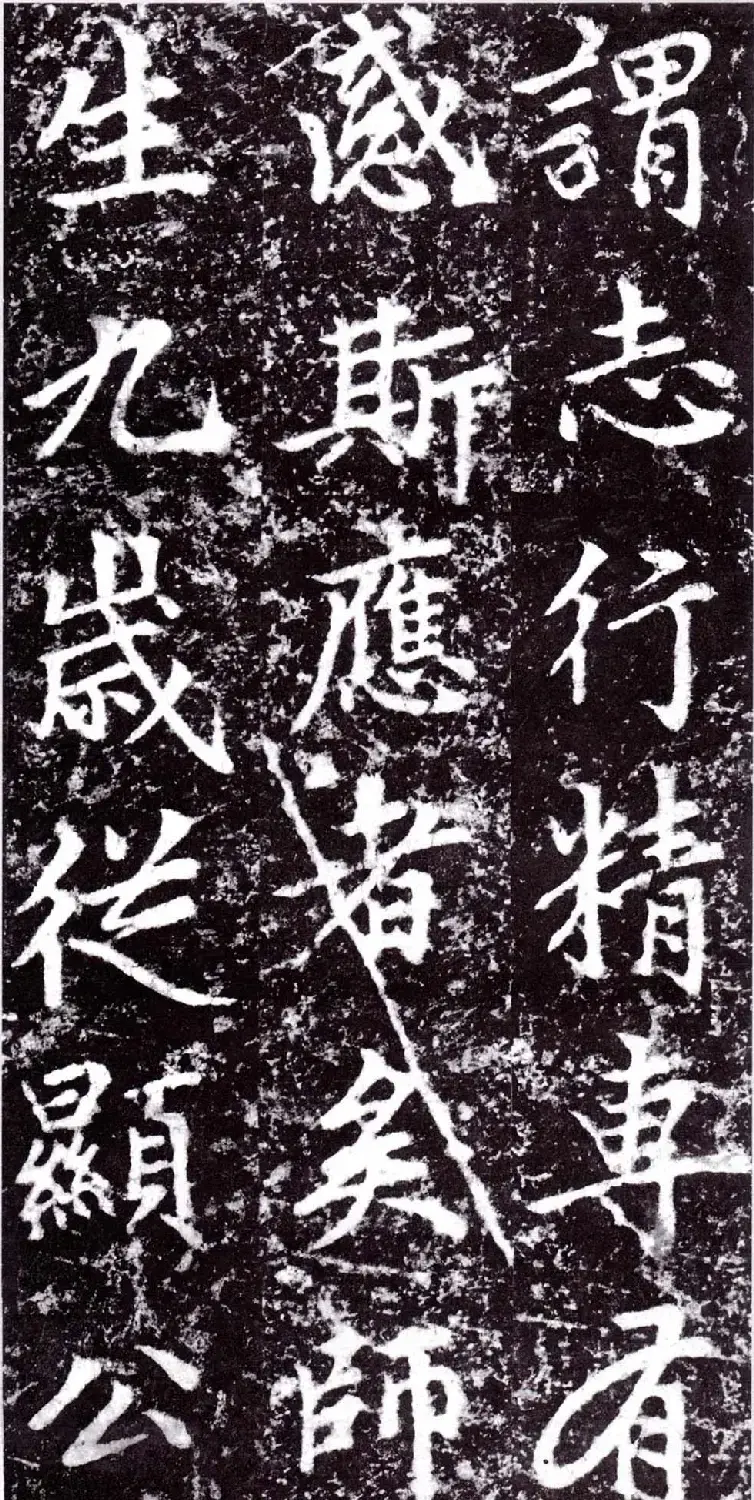 謂志行精專有
感斯應者矣師
生九歲從顯公